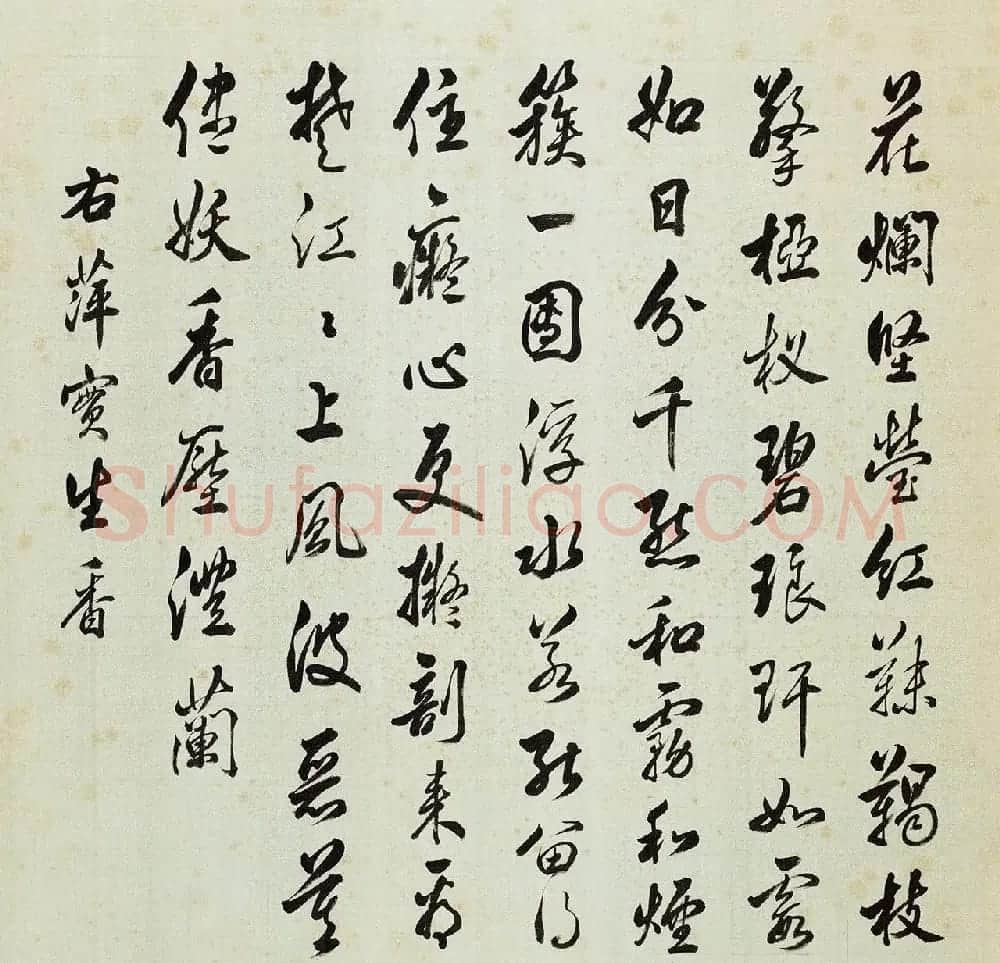 花爛坚瑩红靺鞨枝
擎椏杈碧琅玕如霞
如日分千點和霧和煙
簇一團浮水若能留得
住癡心更擬剖來看
楚江〻上風波惡莫
儘妖香壓澧蘭
右萍實生香
Shufaziliao.COM